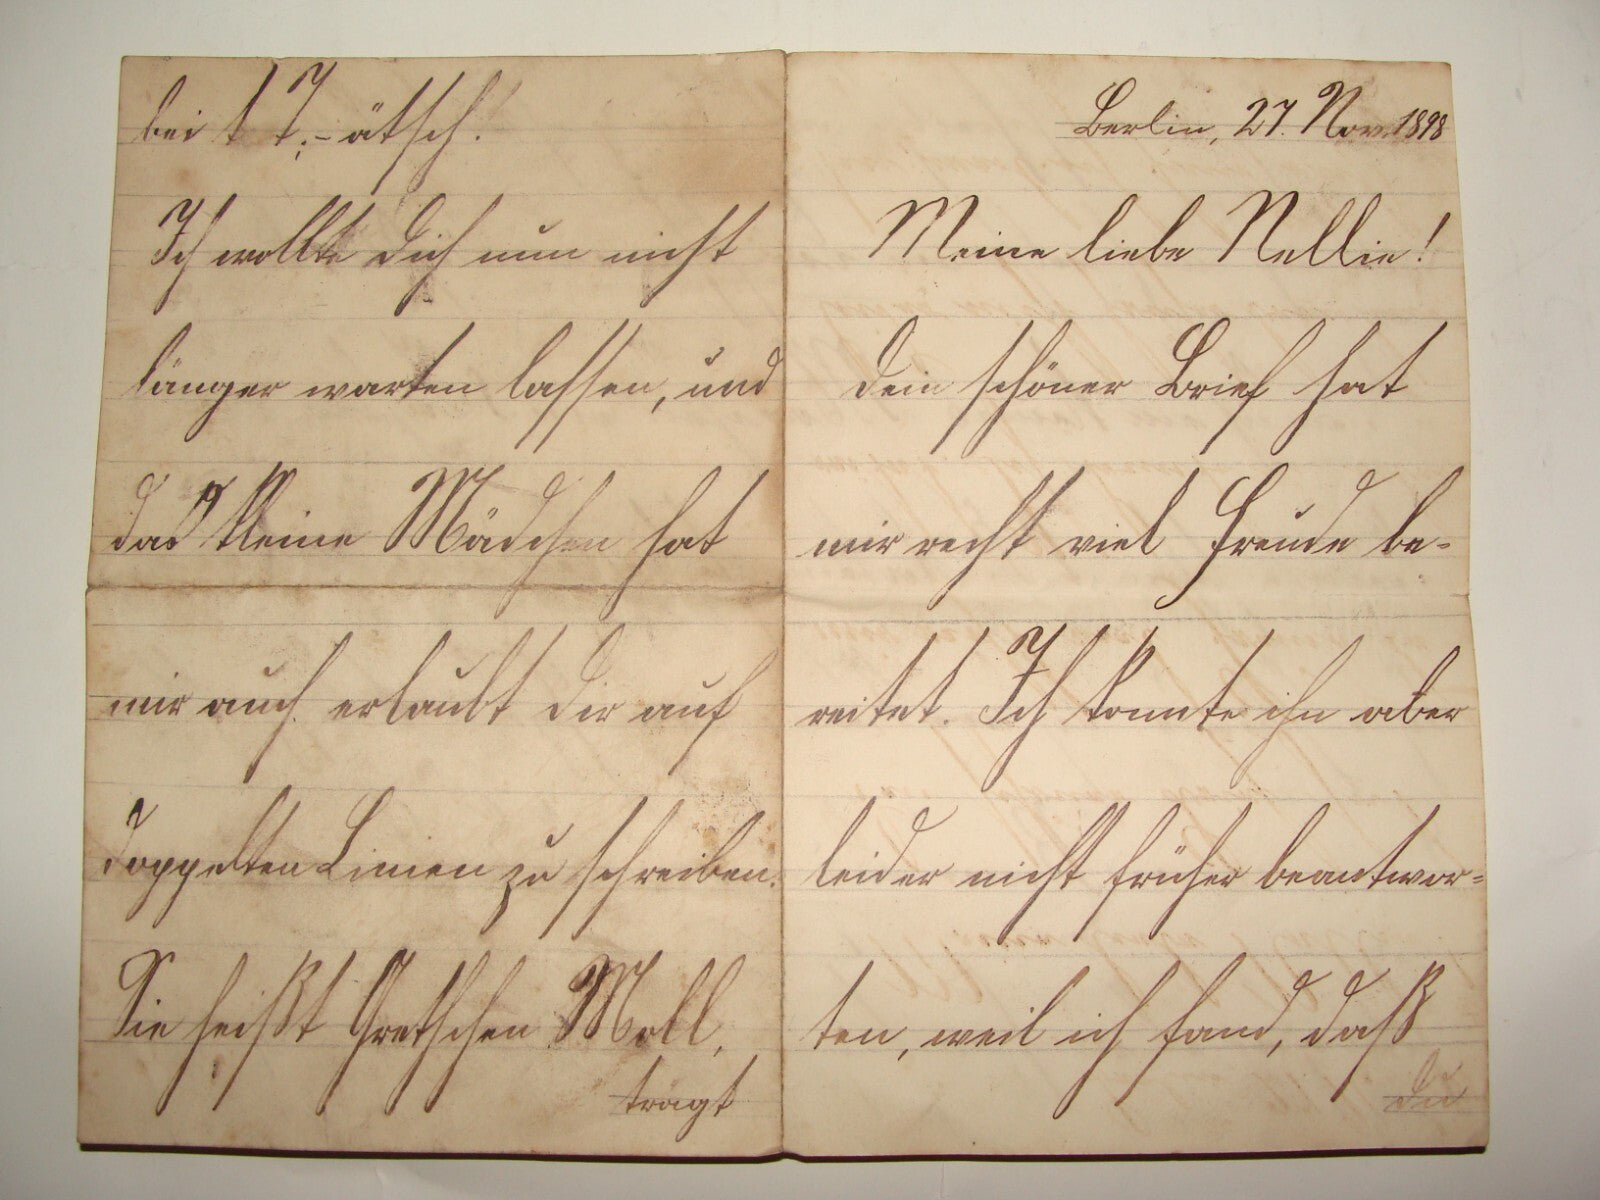 Berlin, 27. Nov. 1898
Meine liebe Nellie!
Dein schöner Brief hat
mir recht viel Freude be-
reitet. Ich konnte ihn aber
leider nicht früher beantwor-
ten, weil ich fand, daß
Du
bei ätsch!
Ich wollte Dich nun nicht
länger warten lassen, und
das kleine Mädchen hat
mir auch erlaubt Dir auf
doppelten Linien zu schreiben.
Sie heißt Gretchen Moll,
trägt